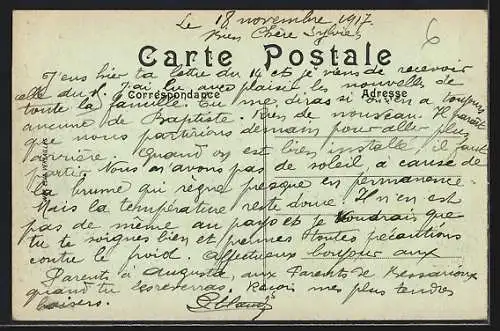 Le 18 novembre 1917
Bien Chère Sylvie
6
Carte Postale
J'eus hier ta lettre du 14 et je viens de recevoir
celle du J'ai lu avec plaisir les nouvelles de
Correspondance Adresse
toute la famille. Tu me diras si on en a toujours
aucune de Baptiste. Rien de nouveau. Il paraît
que nous partirions demain pour aller plus
arrière. Quand on est bien installé, il faut
partir. Nous n'avons pas de soleil à cause de
la brume qui règne presque en permanence.
Mais la température reste douce. Il n'en est
pas de même au pays et je voudrais que
tu te soignes bien et prennes toutes précautions
contre le froid. Affectueux bonjour aux
Parents à Augusta, aux Parents de
quand tu Reçois mes plus tendres
baisers.